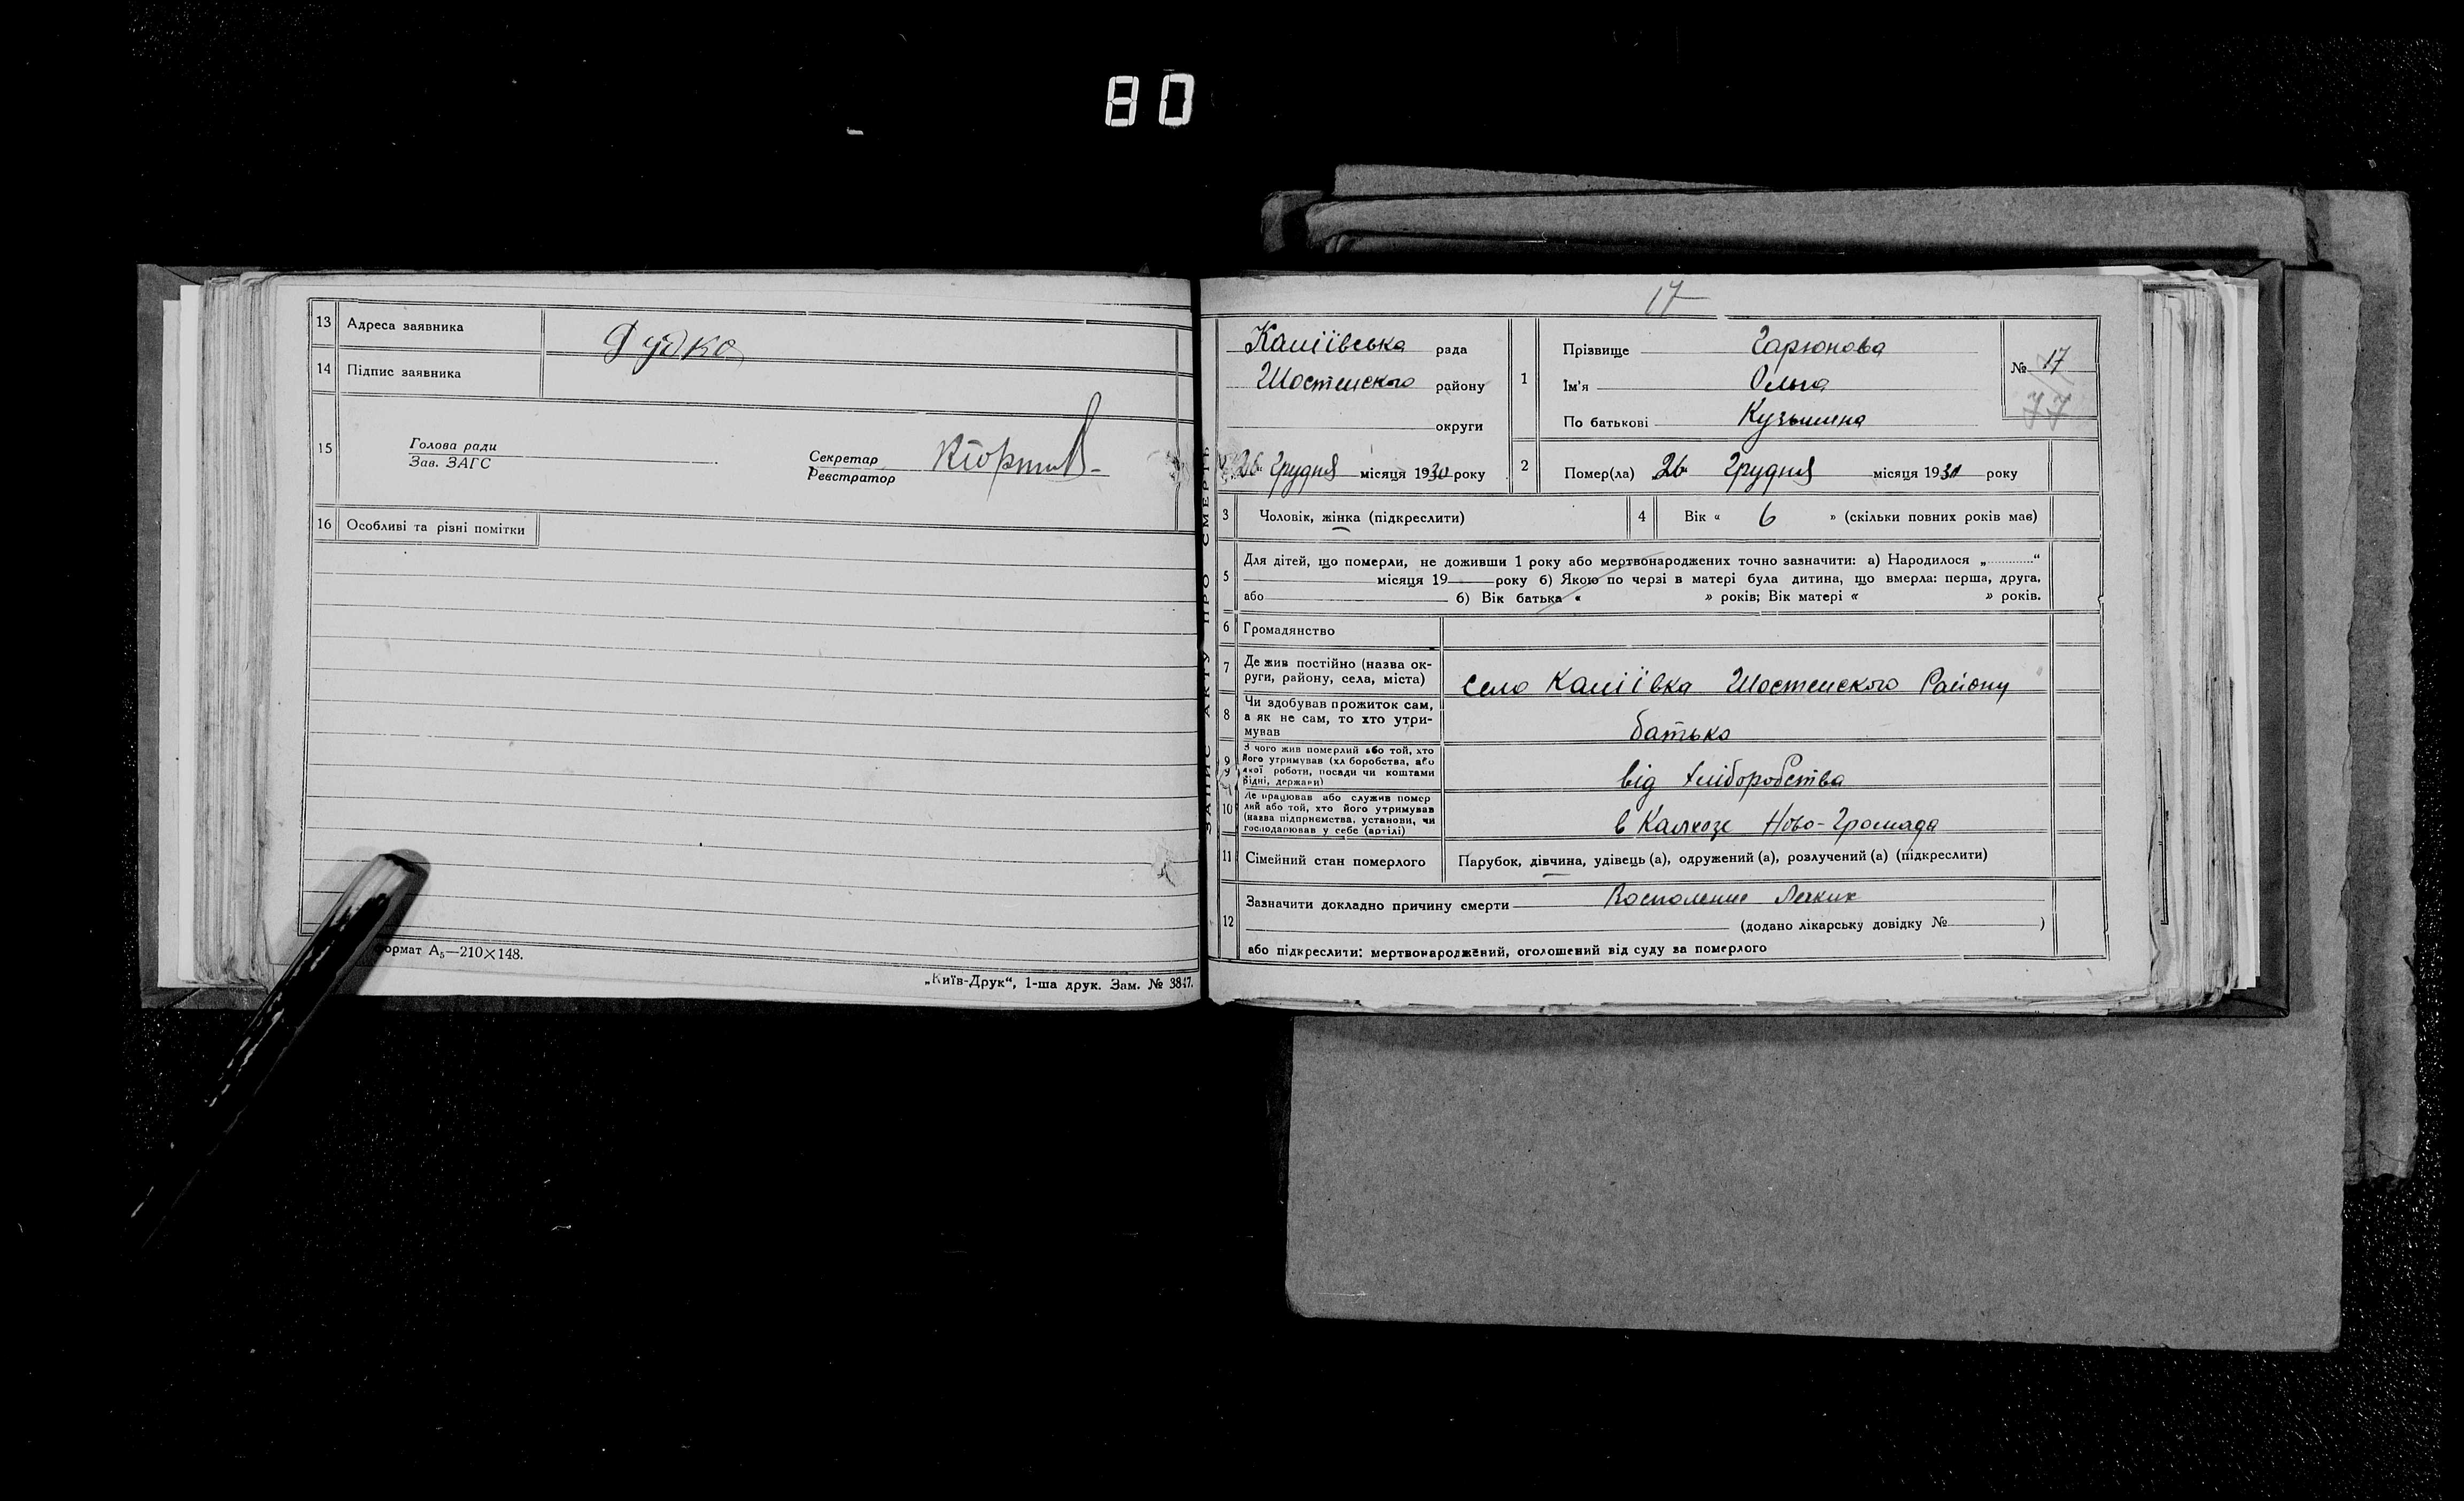 80
13 Адреса заявника
Дудка
14 Підпис заявника
15 Голова ради
Зав. ЗАГС
Секретар
Реєстратор
16 Особливі та різні помітки
формат А₅—210×148.
„Київ-Друк“, 1-ша друк. Зам. № 3847.
ЗАПИС АКТУ ПРО СМЕРТЬ
17
Каліївська рада
Шостенского району
округи
26 Грудня місяця 1930 року
1 Прізвище Гарюнова
Ім'я Ольга
По батькові Кузьмина
№ 17
77
2 Помер(ла) 26 Грудня місяця 1930 року
3 Чоловік, жінка (підкреслити)
4 Вік « 6 » (скільки повних років має)
5 Для дітей, що померли, не доживши 1 року або мертвонароджених точно зазначити: а) Народилося „ “
місяця 19 року б) Якою по черзі в матері була дитина, що вмерла: перша, друга,
або б) Вік батька « » років; Вік матері « » років.
6 Громадянство
7 Де жив постійно (назва ок-
руги, району, села, міста)
село Каліївка Шостенского Району
8 Чи здобував прожиток сам,
а як не сам, то хто утри-
мував
батько
9 З чого жив померлий або той, хто
його утримував (хліборобства, або
якої роботи, посади чи коштами
рідні, держави)
від хліборобства
10 Де працював або служив помер
лий або той, хто його утримував
(назва підприємства, установи, чи
господарював у себе (артілі)
в Калхозе Ново-Громада
11 Сімейний стан померлого
Парубок, дівчина, удівець (а), одружений (а), розлучений (а) (підкреслити)
12 Зазначити докладно причину смерти Восполение Легких
(додано лікарську довідку № )
або підкреслити: мертвонароджений, оголошений від суду за померлого